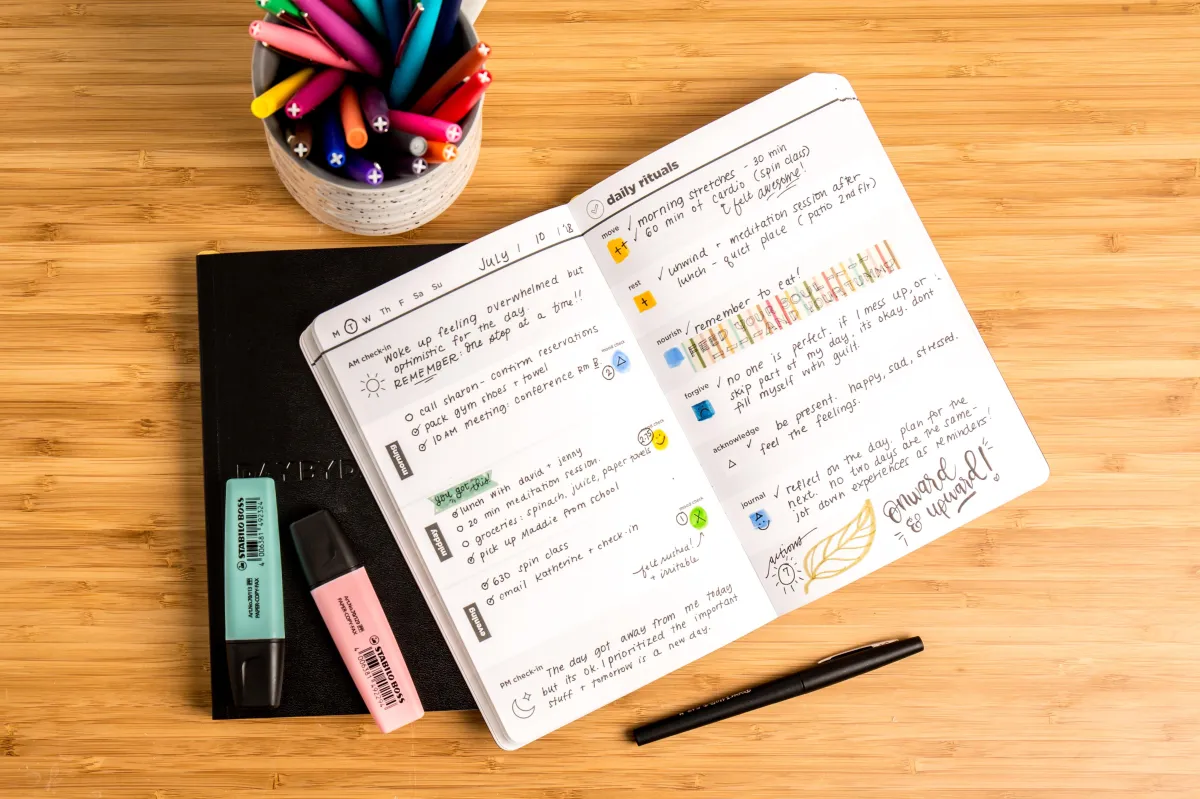 JULY 1 10 1'18
M T W Th F Sa Su
AM check-in
Woke up feeling overwhelmed but
optimistic for the day.
REMEMBER: one step at a time!!
call sharon - confirm reservations
pack gym shoes + towel
10AM meeting: conference Rm B
morning
mood check
2
you got this
lunch with david + jenny
20 min meditation session.
groceries: spinach, juice, paper towels
pick up Maddie from school
midday
2.75
630 spin class
email Katherine + check-in
evening
mood check
1
felt rushed!
+ irritable
PM check-in
The day got away from me today
but its OK. I prioritized the important
stuff + tomorrow is a new day.
daily rituals
move
morning stretches - 30 min
60 min of cardio (spin class)
I felt awesome!
rest
unwind + meditation session after
lunch - quiet place (patio 2nd flr)
nourish
remember to eat!
FEED YOUR SOUL
AND YOUR
forgive
no one is perfect. if I mess up, or
skip part of my day, its okay. dont
fill myself with guilt.
acknowledge
be present. happy, sad, stressed.
feel the feelings.
journal
reflect on the day. plan for the
next. no two days are the same-
jot down experiences as reminders!
actions
7
onward
& upward!
DAYBYD
STABILO BOSS
PAPER-COPY-FAX
4 006381 492324
STABILO BOSS
PAPER-COPY-FAX
4 006381 492294